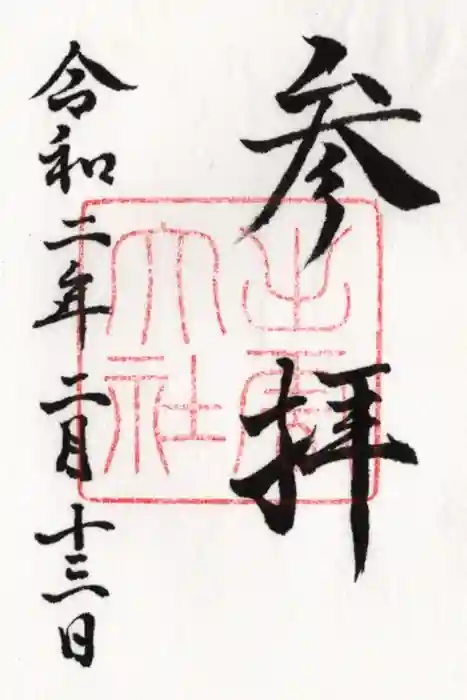 参拝
出雲
大社
令和二年二月十三日